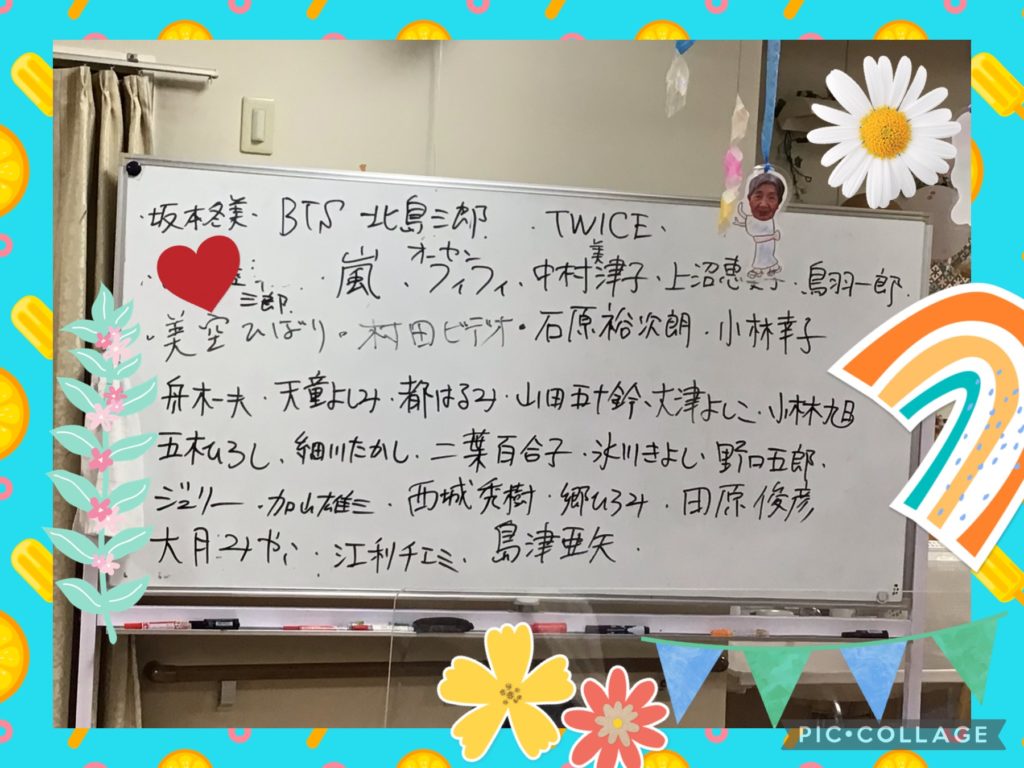 ・坂本冬美・ BTS 北島三郎 ・TWICE・
嵐・オーセンフィフィ・中村美津子・上沼恵 子・鳥羽一郎・
三郎
・美空ひばり・村田ビデオ・石原裕次朗・小林幸子
舟木一夫・天童よしみ・都はるみ・山田五十鈴・大津よしこ・小林旭
五木ひろし・細川たかし・二葉百合子・氷川きよし・野口五郎・
ジュリー・加山雄三・西城秀樹・郷ひろみ・田原俊彦
大月みやこ・江利チエミ・島津亜矢・
PIC•COLLAGE